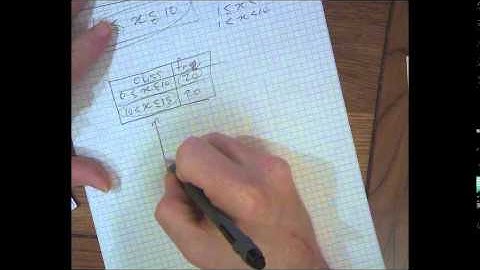 ≤ x ≤ 10
1 ≤ x ≤
1 < x ≤ 10
class freq
0 ≤ x ≤ 10 20
10 < x ≤ 15 20